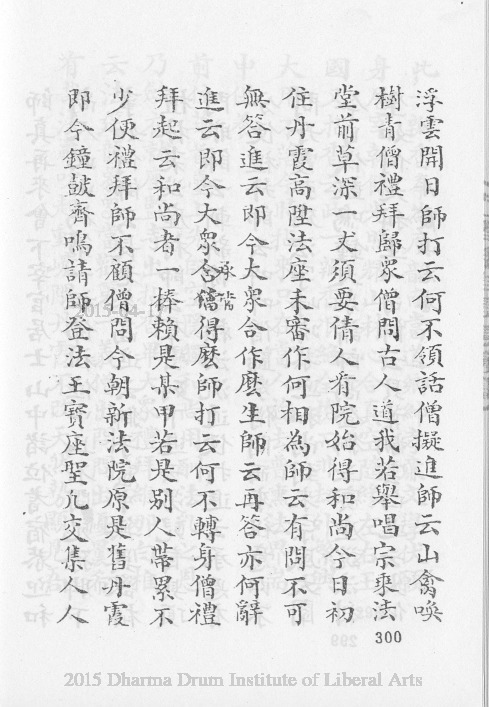 浮雲開日師打云何不領話僧擬進師云山禽喚
樹青僧禮拜歸眾僧問古人道我若舉唱宗乘法
堂前草深一丈須要倩人看院始得和尚今日初
住丹霞高陞法座未審作何相為師云有問不可
無答進云即今大眾合作麼生師云再答亦何辭
進云即今大眾承當得麼師打云何不轉身僧禮
拜起云和尚者一棒賴是某甲若是別人帶累不
少便禮拜師不顧僧問今朝新法院原是舊丹霞
即今鐘鼓齊鳴請師登法王寶座聖凡交集人人
300
2015-04-17
2015 Dharma Drum Institute of Liberal Arts